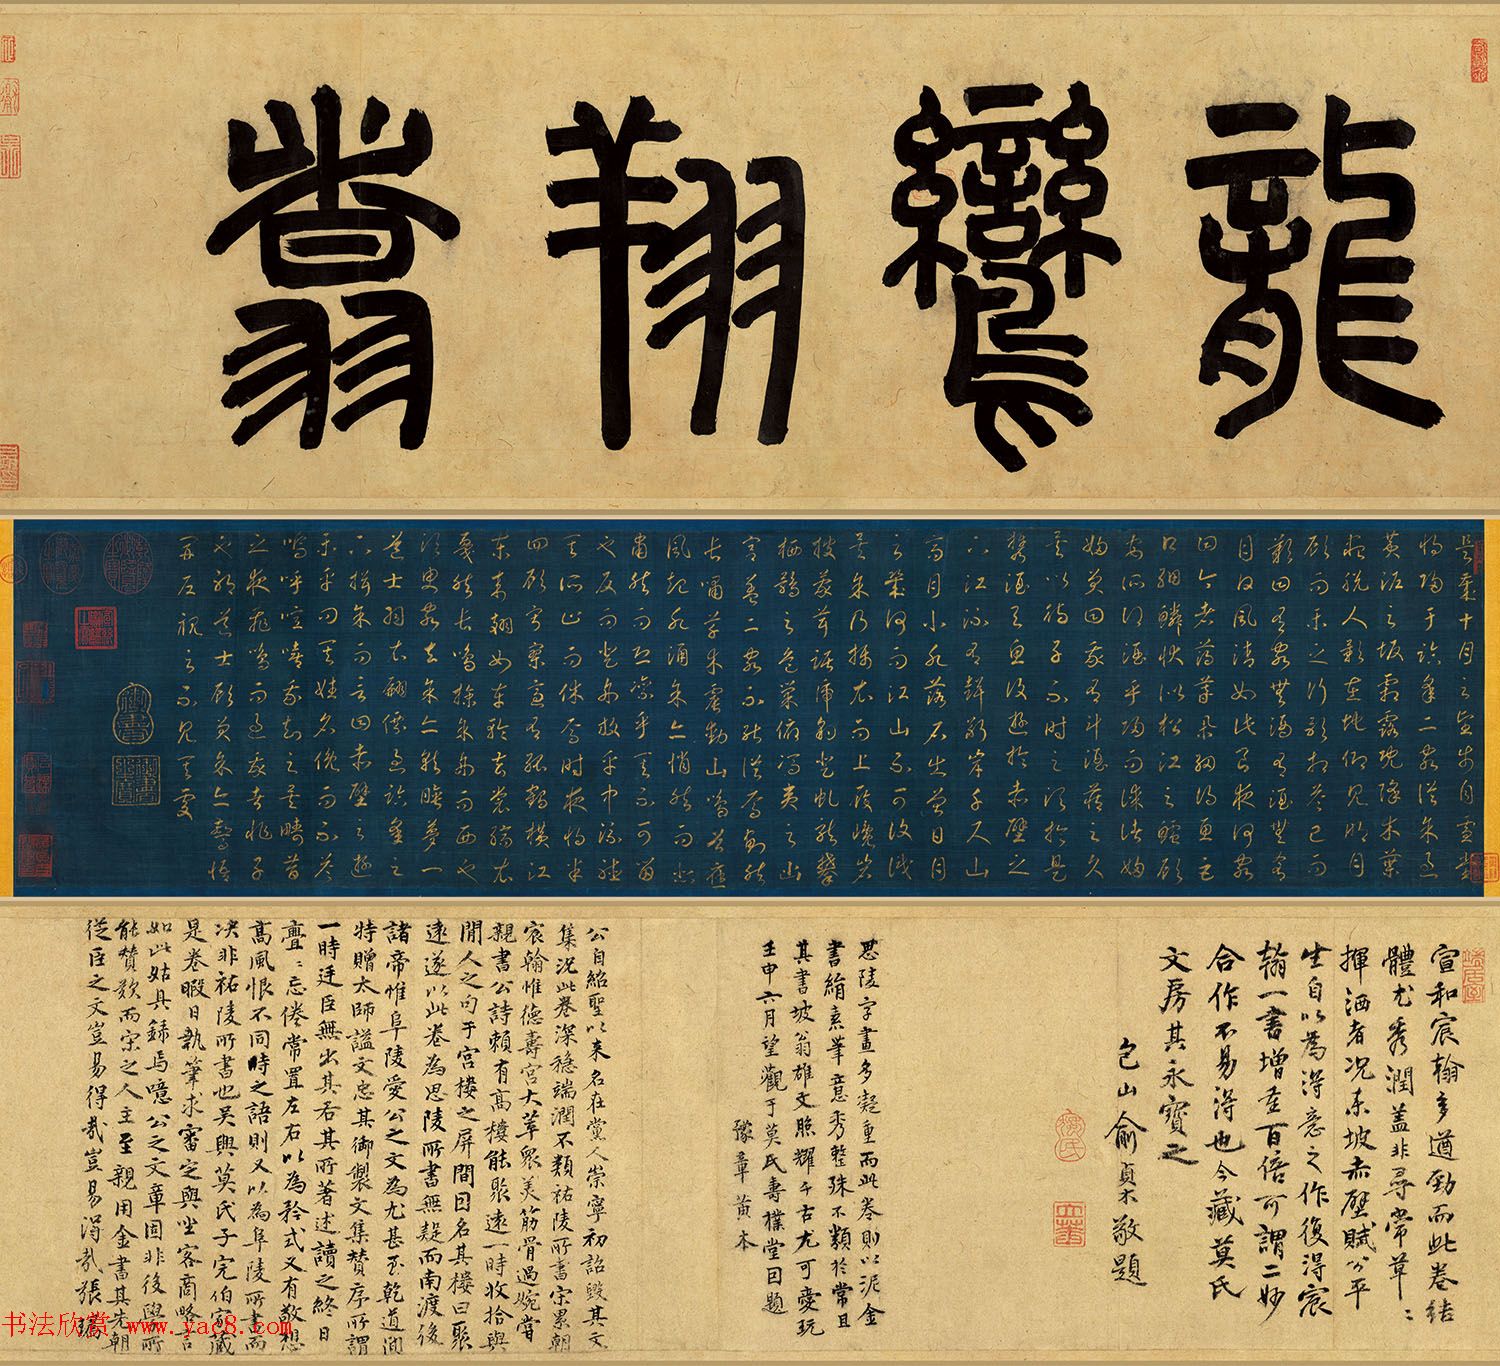 龍鸞翔翥
是歲十月之望步自雪堂
將歸于臨皋二客從余過
黃泥之坂霜露既降木葉
盡脫人影在地仰見明月
顧而樂之行歌相答已而
歎曰有客無酒有酒無肴
月白風清如此良夜何客
曰今者薄暮舉網得魚巨
口細鱗狀似松江之鱸顧
安所得酒乎歸而謀諸婦
婦笑曰我有斗酒藏之久
矣以待子不時之須於是
攜酒與魚復遊於赤壁之
下江流有聲斷岸千尺山
高月小水落石出曾日月
之幾何而江山不可復識
矣余乃攝衣而上履巉岩
披蒙茸踞虎豹登虬龍攀
栖鶻之危巢俯馮夷之幽
宮蓋二客不能從焉劃然
長嘯草木震動山鳴谷應
風起水涌余亦悄然而悲
肅然而恐凜乎其不可留
也反而登舟放乎中流聽
其所止而休焉時夜將半
四顧寂寥適有孤鶴橫江
東來翅如車輪玄裳縞衣
戛然長鳴掠余舟而西也
須臾客去余亦就睡夢一
道士羽衣翩僊過臨皋之
下揖余而言曰赤壁之遊
樂乎問其姓名俛而不答
嗚呼噫嘻我知之矣疇昔
之夜飛鳴而過我者非子
也耶道士顧笑余亦驚悟
開戶視之不見其處
宣和宸翰多遒勁而此卷結
體尤秀潤蓋非尋常草草
揮洒者況東坡赤壁賦公平
生自以為得意之作復得宸
翰一書增重百倍可謂二妙
合作不易得也今藏莫氏
文房其永寶之
包山俞貞木敬題
思陵字畫多凝重而此卷則以泥金
書絹素筆意秀整殊不類於常且
其書坡翁雄文照耀千古尤可愛玩
壬申六月望觀于莫氏壽樸堂因題
豫章黃本
公自紹聖以來名在黨人崇寧初詔毀其文
集況此卷深穩端潤不類祐陵所書宋累朝
宸翰惟德壽宮大萃眾美筋骨過婉嘗
親書公詩賴有高樓能聚遠一時收拾與
閒人之句于宮樓之屏間因名其樓曰聚
遠遂以此卷為思陵所書無疑而南渡後
諸帝惟阜陵愛公之文為尤甚至乾道間
特贈太師謚文忠其御製文集贊序所謂
一時廷臣無出其右其所著述讀之終日
亹亹忘倦常置左右以為矜式又有敬想
高風恨不同時之語則又以為阜陵所書而
決非祐陵所書也吳興莫氏子完伯家藏
是卷暇日執筆求審定與坐客商略言
如此姑具錄焉噫公之文章固非後學所
能贊歎而宋之人主至親用金書其先朝
從臣之文豈易得哉豈易得哉張
书法欣赏 www.yac8.com